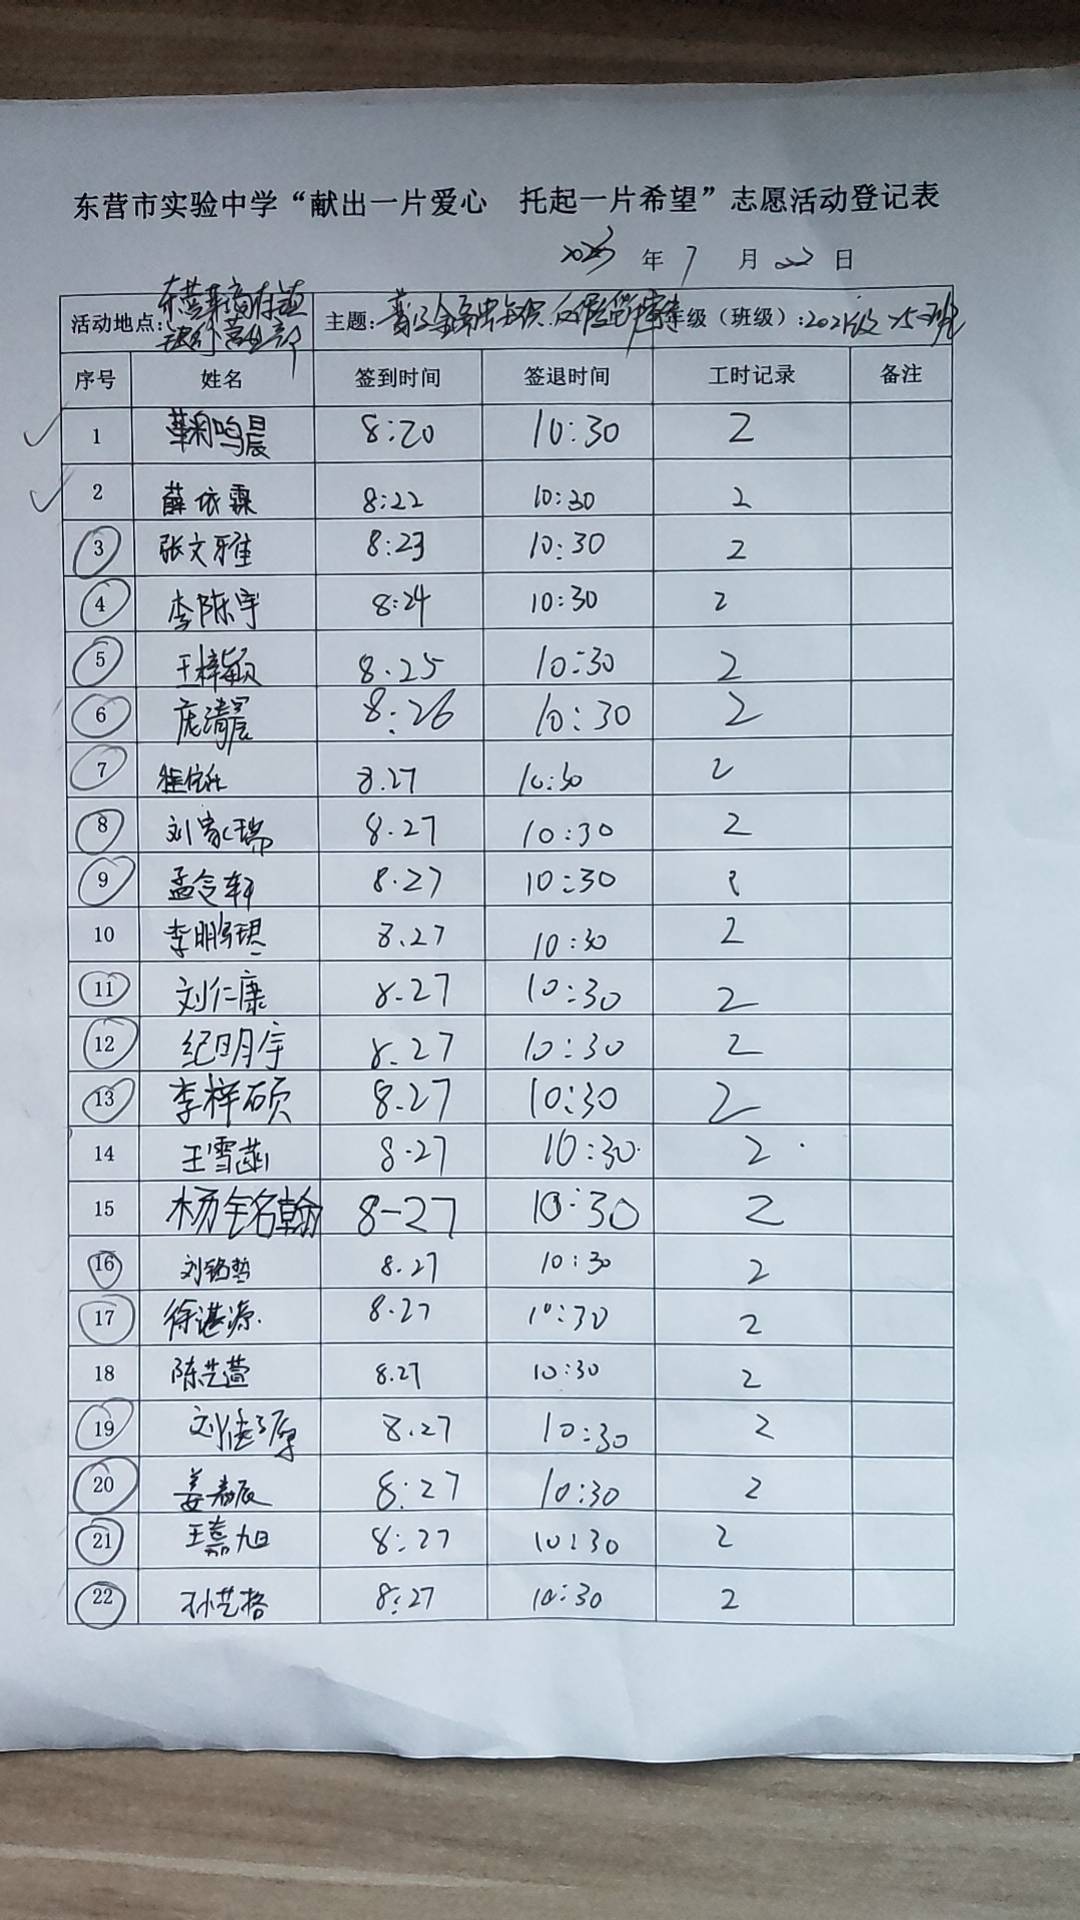 东营市实验中学“献出一片爱心 托起一片希望”志愿活动登记表
2023 年 7 月 22 日
活动地点: 东营莱商村镇银行营业部 主题: 普及金融知识 年级（班级）: 2021级
序号 姓名 签到时间 签退时间 工时记录 备注
1 鞠鸣晨 8:20 10:30 2
2 薛依霖 8:22 10:30 2
3 张文雅 8:23 10:30 2
4 李陈宇 8:24 10:30 2
5 王梓颖 8.25 10:30 2
6 庞清宸 8:26 10:30 2
7 8.27 10:30 2
8 刘家瑞 8.27 10:30 2
9 孟令轩 8.27 10:30 2
10 李鹏珺 8.27 10:30 2
11 刘仁康 8.27 10:30 2
12 纪明宇 8.27 10:30 2
13 李梓硕 8.27 10:30 2
14 王雪菡 8.27 10:30 2
15 杨铭翰 8-27 10:30 2
16 刘铭哲 8.27 10:30 2
17 徐湛源 8.27 10:30 2
18 陈艺萱 8.27 10:30 2
19 刘 8.27 10:30 2
20 姜 8:27 10:30 2
21 王嘉旭 8:27 10:30 2
22 孙艺格 8:27 10:30 2